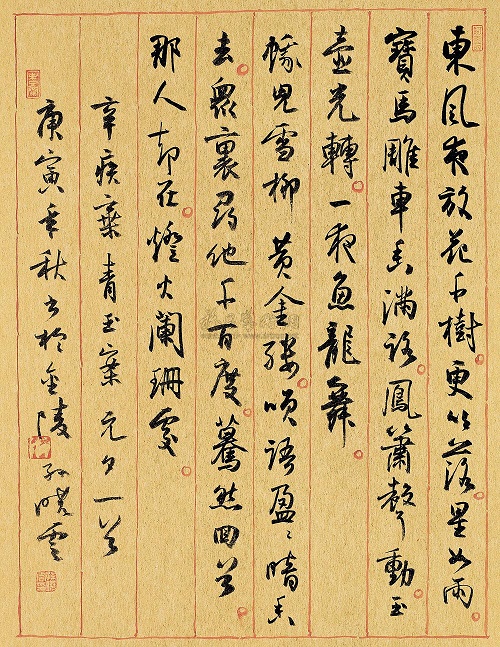 東風夜放花千樹更吹落星如雨
寶馬雕車香滿路鳳簫聲動玉
壺光轉一夜魚龍舞
蛾兒雪柳黄金縷咲語盈〻暗香
去眾裏尋他千百度驀然回首
那人却在燈火闌珊處
辛疾棄青玉案元夕一首
庚寅年秋書於金陵孫曉雲